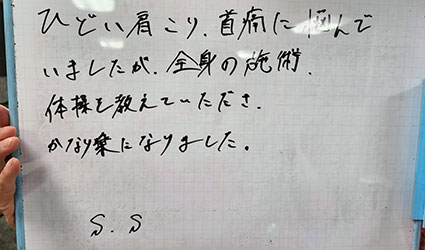 ひどい肩こり、首痛に悩んで
いましたが、全身の施術、
体操を教えていただき、
かなり楽になりました。
S.S